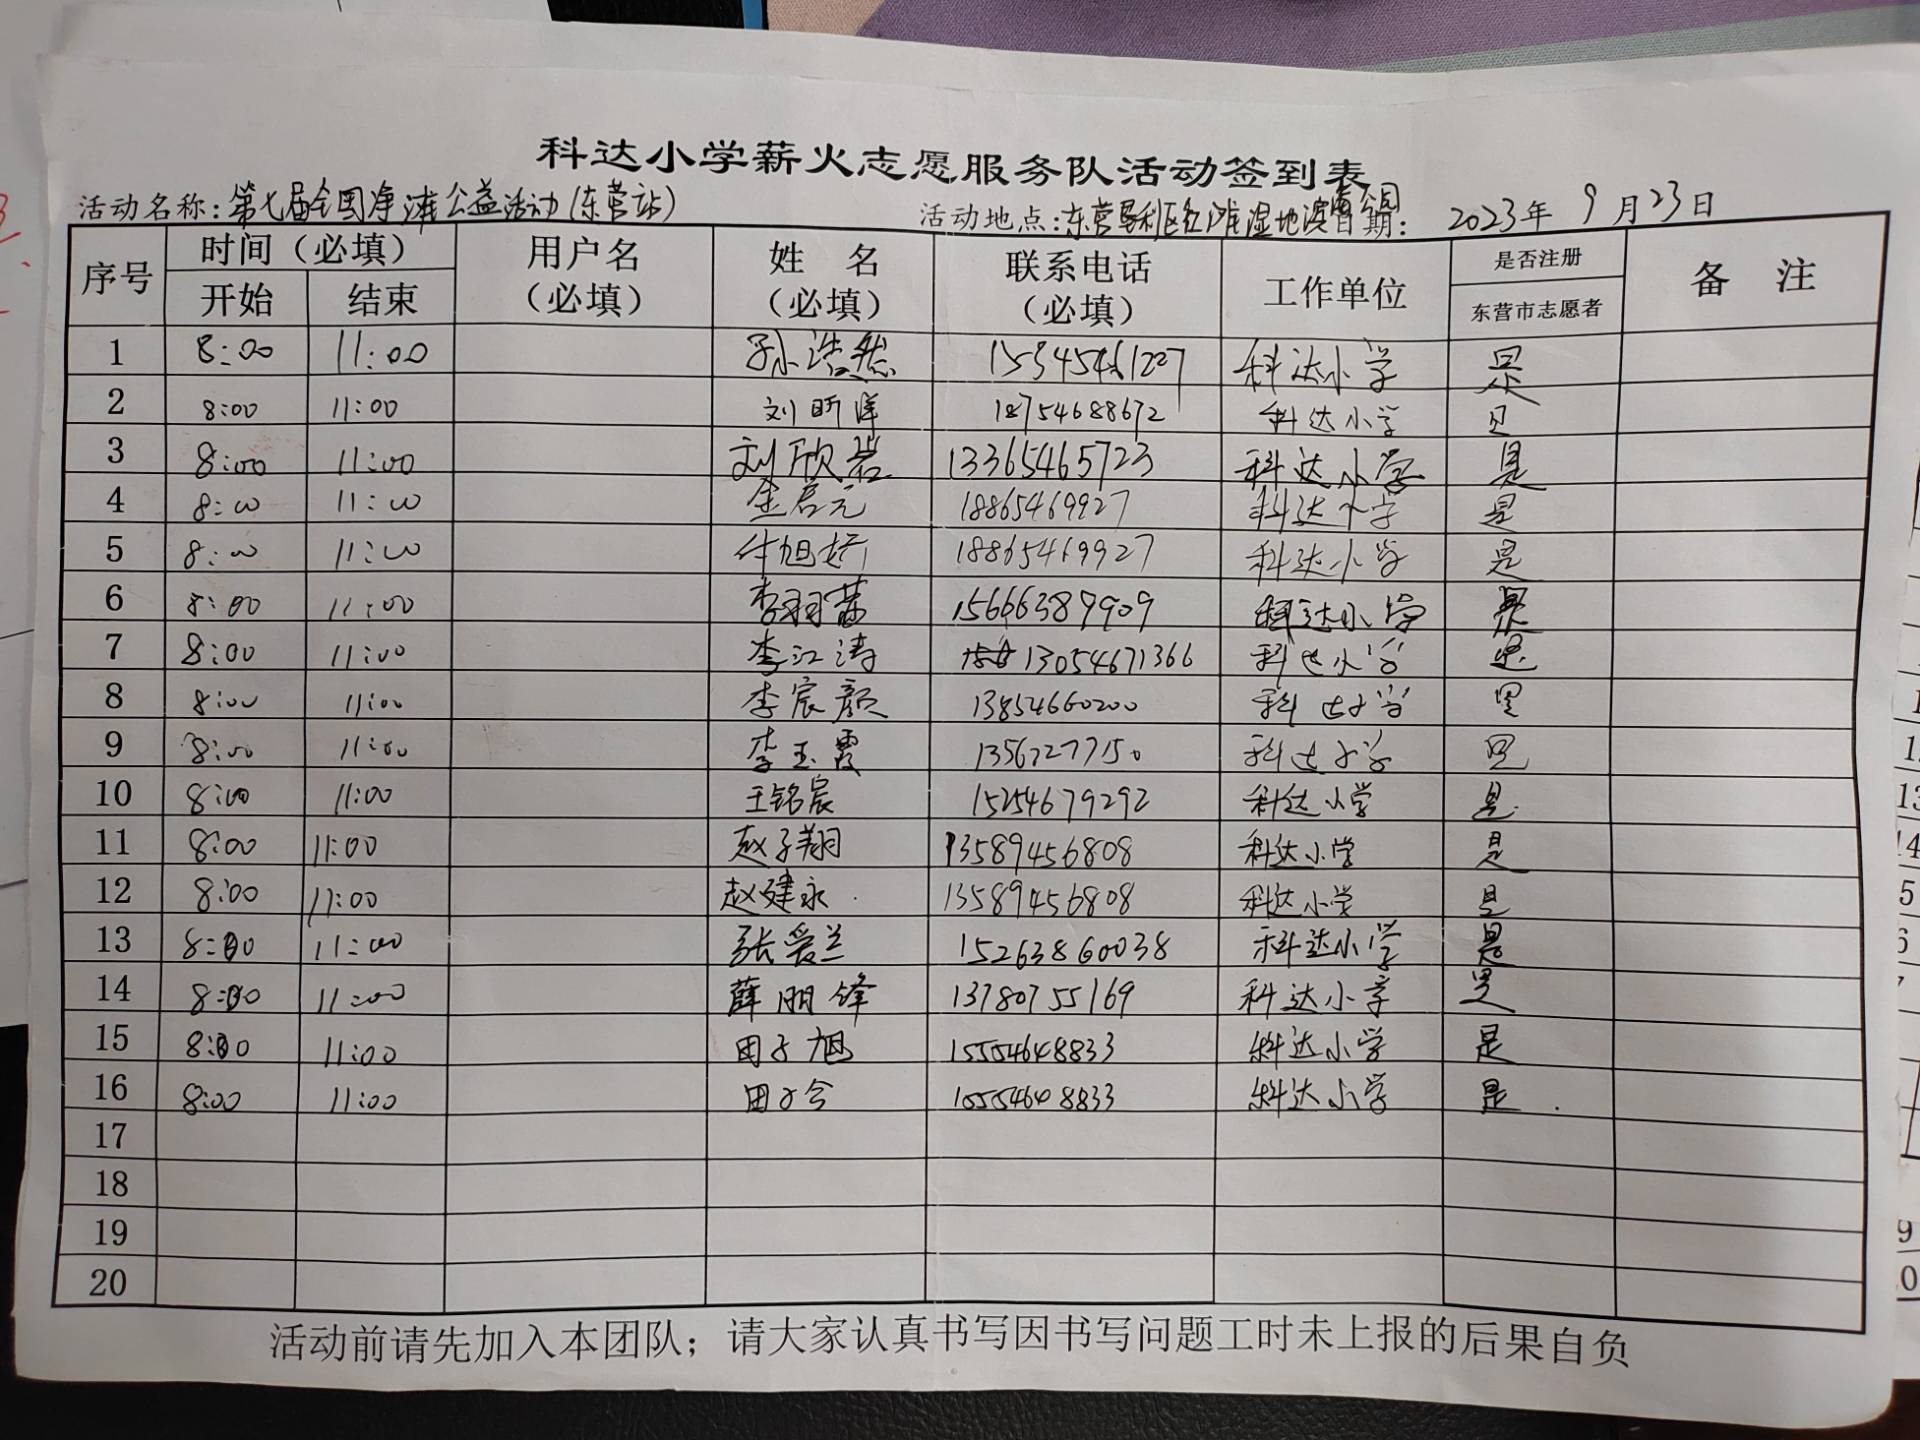 科达小学薪火志愿服务队活动签到表
活动名称:第七届全国净滩公益活动(东营站) 活动地点:东营垦利区红滩湿地滨海公园 日期: 2023年 9月23日
序号 时间(必填) 用户名(必填) 姓 名(必填) 联系电话(必填) 工作单位 是否注册 备 注
开始 结束 东营市志愿者
1 8:00 11:00 孙浩然 15345461227 科达小学 是
2 8:00 11:00 刘昕洋 18754688672 科达小学 是
3 8:00 11:00 刘欣岩 13365465723 科达小学 是
4 8:00 11:00 金启元 18865469927 科达小学 是
5 8:00 11:00 付旭娇 18865469927 科达小学 是
6 8:00 11:00 李羽菡 15666389909 科达小学 是
7 8:00 11:00 李江涛 13054671366 科达小学 是
8 8:00 11:00 李宸颜 13854660200 科达小学 是
9 8:00 11:00 李玉霞 13567277150 科达小学 是
10 8:00 11:00 王铭宸 15254679292 科达小学 是
11 8:00 11:00 赵子翔 13589456808 科达小学 是
12 8:00 11:00 赵建永 13589456808 科达小学 是
13 8:00 11:00 张爱兰 15263860038 科达小学 是
14 8:00 11:00 薛丽锋 13780755169 科达小学 是
15 8:00 11:00 田子旭 15554648833 科达小学 是
16 8:00 11:00 田子今 15554648833 科达小学 是
17
18
19
20
活动前请先加入本团队；请大家认真书写因书写问题工时未上报的后果自负